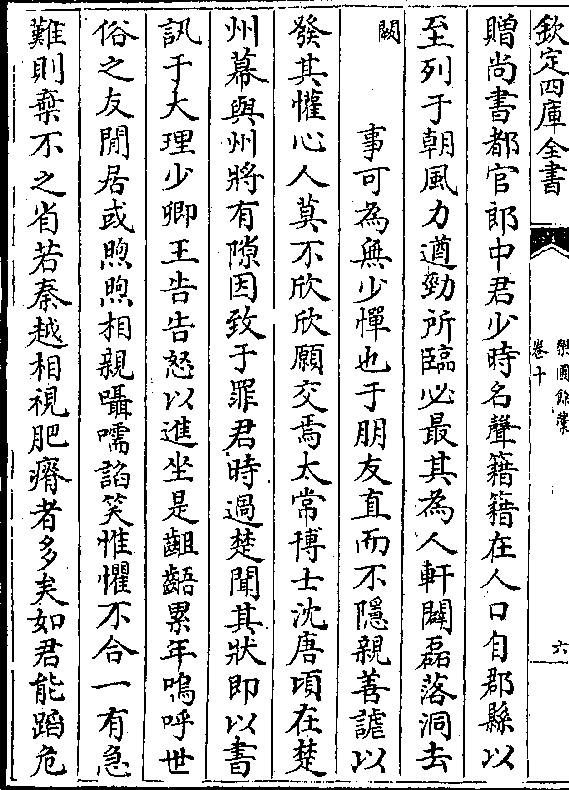 欽定四庫全書
樂圃餘藁
卷十
六
贈尚書都官郎中君少時名聲籍籍在人口自郡縣以
至列于朝風力遒勁所臨必最其為人軒闢磊落洞去
闕
事可為無少憚也于朋友直而不隱親善謔以
發其懽心人莫不欣欣願交焉太常博士沈唐頃在楚
州幕與州將有隙因致于罪君時過楚聞其狀即以書
訊于大理少卿王告告怒以進坐是齟齬累年嗚呼世
俗之友閒居或煦煦相親囁嚅諂笑惟懼不合一有急
難則棄不之省若秦越相視肥瘠者多矣如君能蹈危